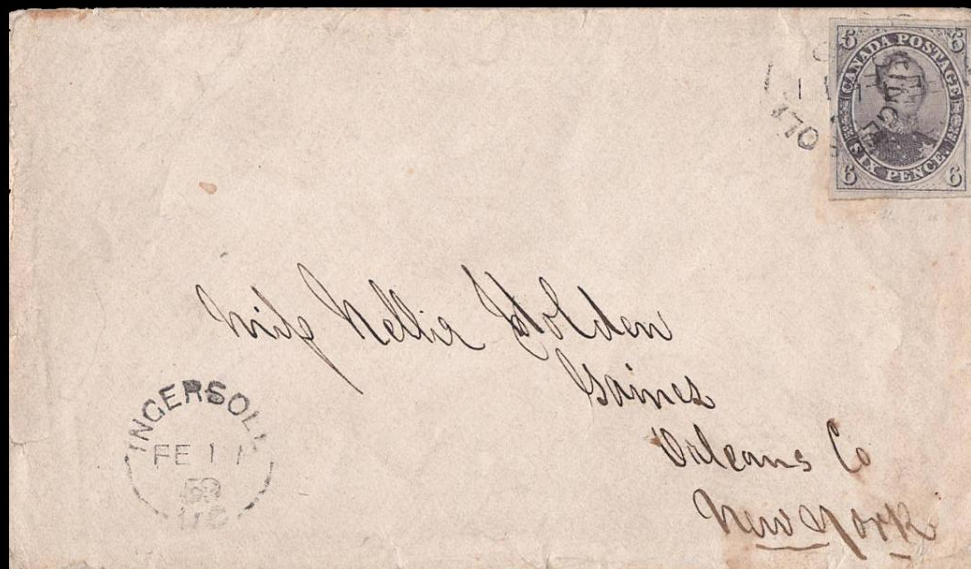 6 CANADA POSTAGE 6
6 SIX PENCE. 6
Miss Nellie Holden
Gaines
Orleans Co
New York
INGERSOLL
FE 11
59
U.C